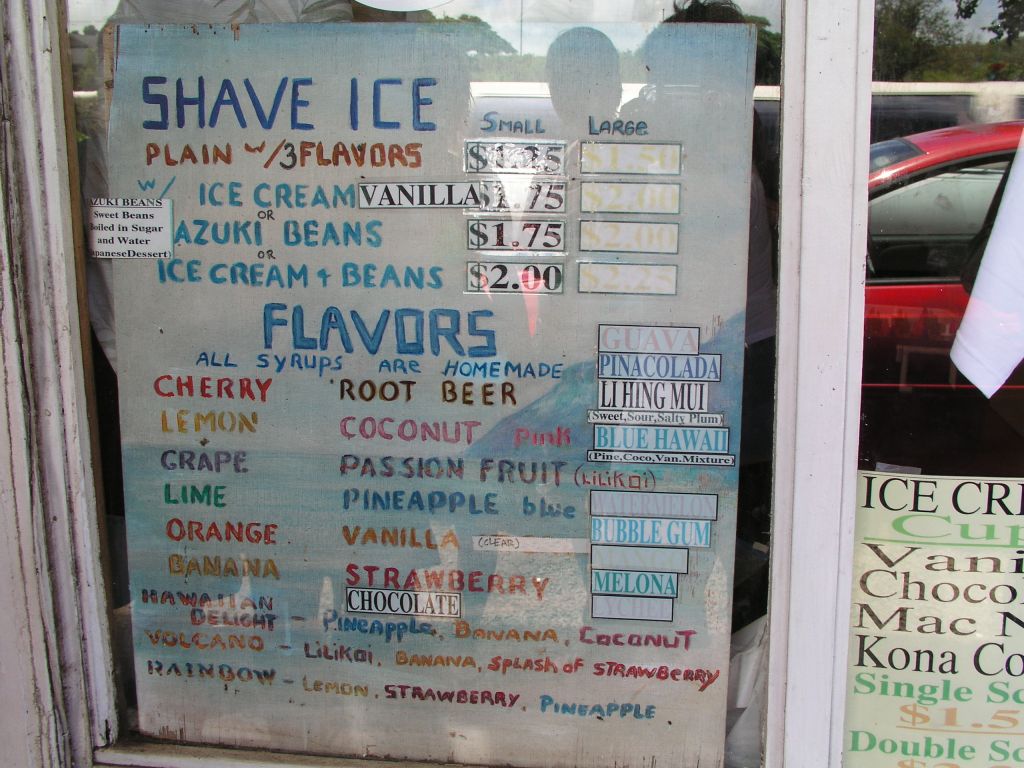 SHAVE ICE
SMALL LARGE
PLAIN w/3 FLAVORS $1.25 $1.50
w/ ICE CREAM VANILLA $1.75 $2.00
OR
AZUKI BEANS $1.75 $2.00
OR
ICE CREAM + BEANS $2.00 $2.25
AZUKI BEANS
Sweet Beans
Boiled in Sugar
and Water
apaneseDessert)
FLAVORS
ALL SYRUPS ARE HOMEMADE
CHERRY
LEMON
GRAPE
LIME
ORANGE
BANANA
ROOT BEER
COCONUT Pink
PASSION FRUIT (LiLiKoi)
PINEAPPLE blue
VANILLA (CLEAR)
STRAWBERRY
CHOCOLATE
GUAVA
PINACOLADA
LI HING MUI
(Sweet,Sour,Salty Plum)
BLUE HAWAII
(Pine,Coco,Van.Mixture)
WATERMELON
BUBBLE GUM
MELONA
LYCHEE
HAWAIIAN
DELIGHT - PineAPPLe, BANANA, COCONUT
VOLCANO - LiLiKoi, BANANA, SPLASH OF STRAWBERRY
RAINBOW - LEMON, STRAWBERRY, PINEAPPLE
ICE CRE
Cup
Vani
Choco
Mac N
Kona Co
Single Sc
$1.5
Double Sc